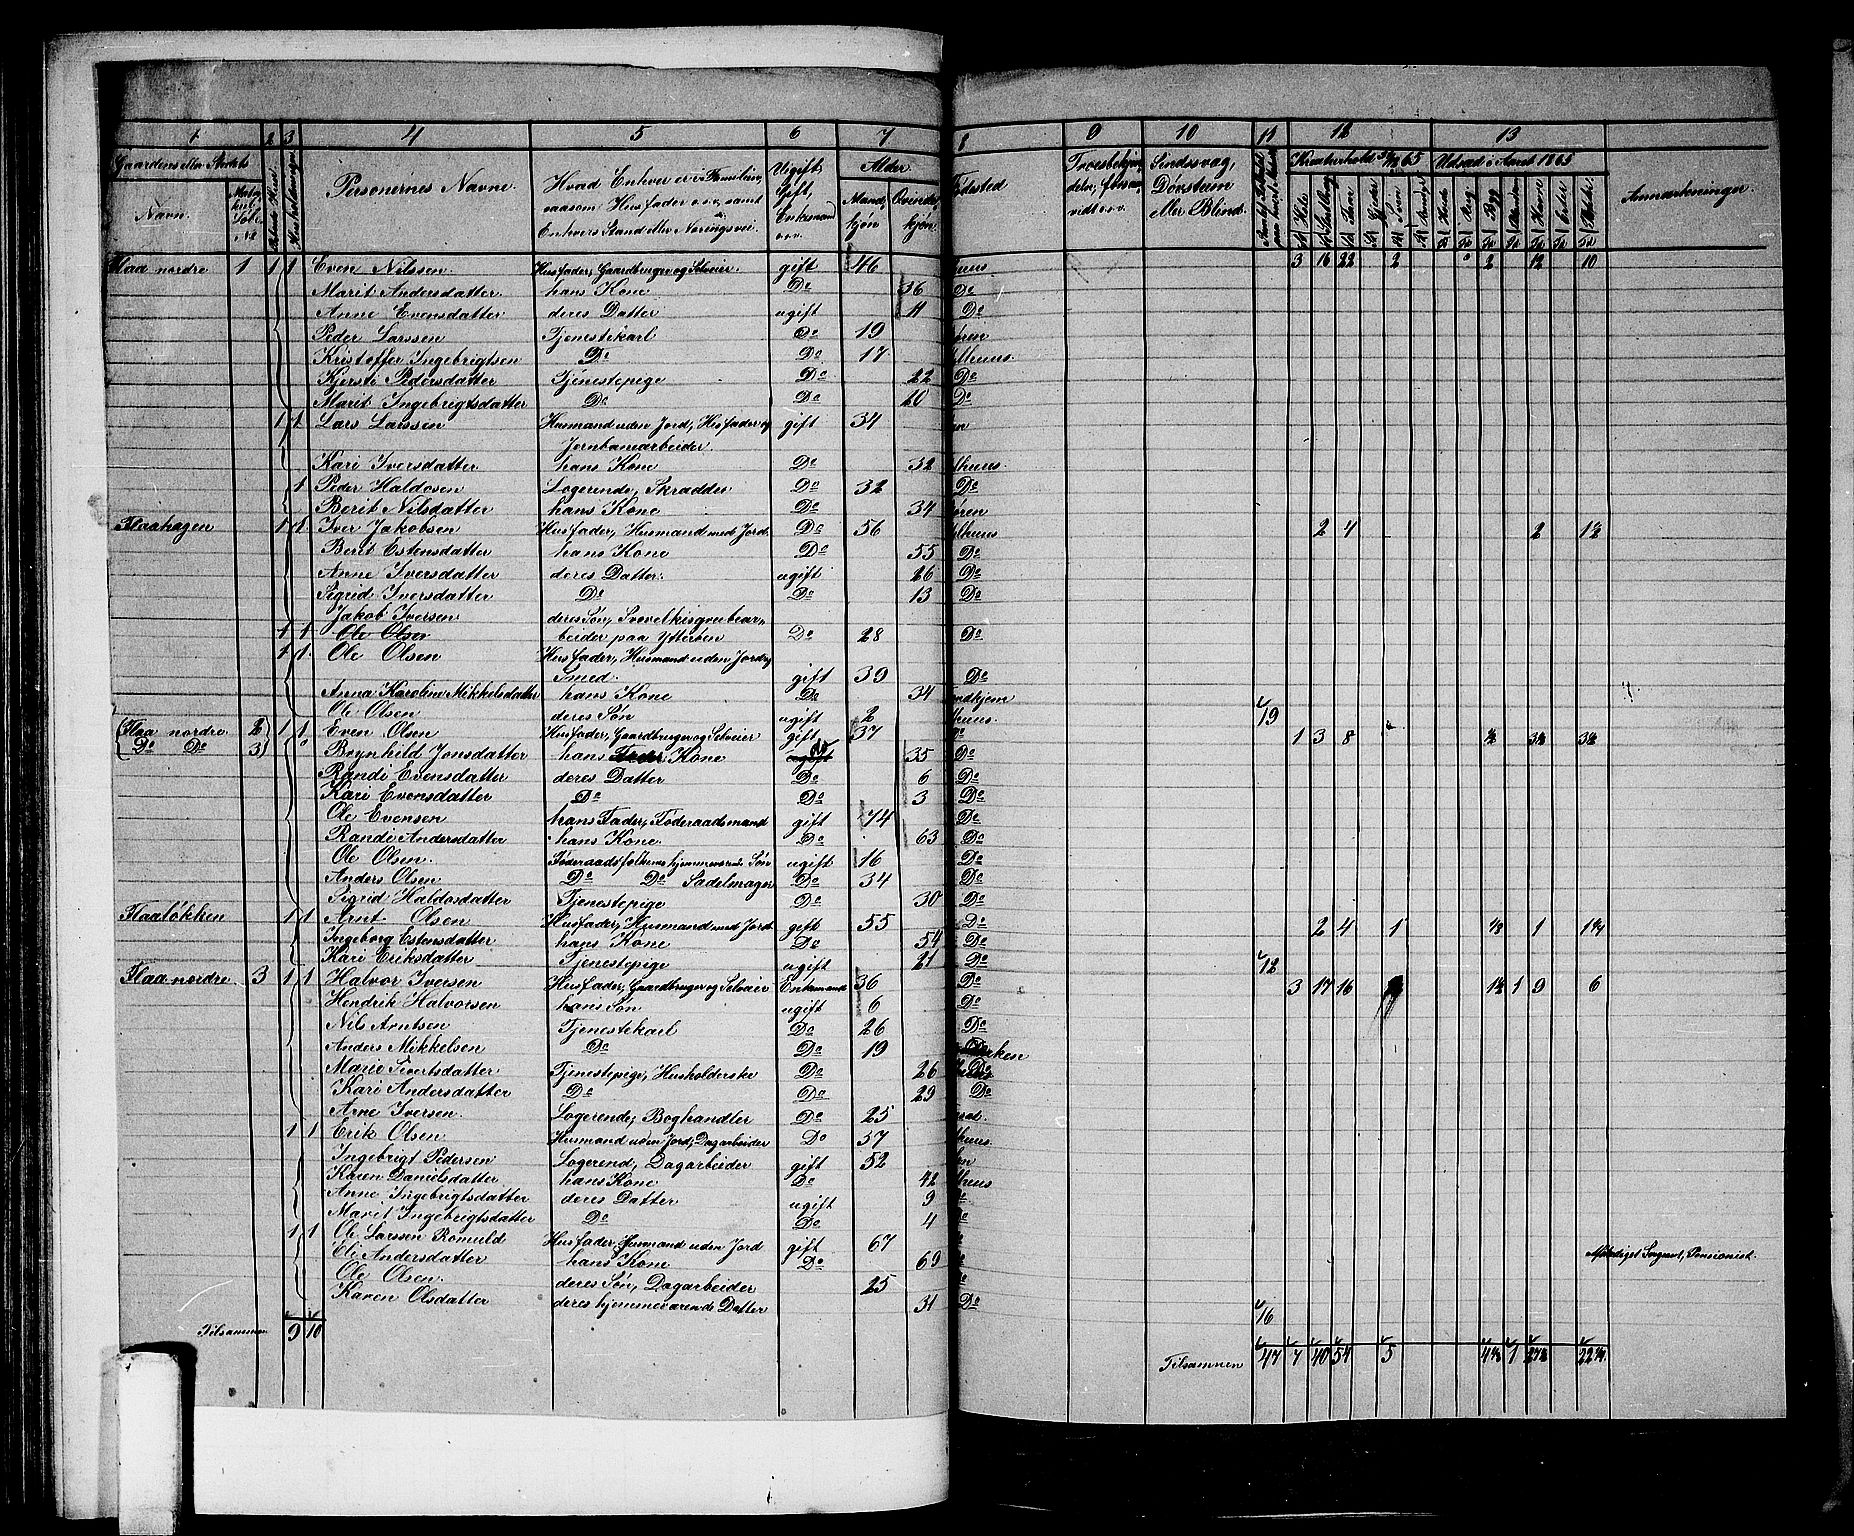 1 2 3 4 5 6 7 8 9 10 11 12 13
Gaardens eller Stedets Personernes Navne. Hvad Enhver er i Familien, Ugift, Alder Fødested Sindssvag, Kreaturhold 31/12 65 Udsæd i Aaret 1865 Anmærkninger.
Navn. saasom Husfader o.s.v. samt Gift, Mand- Qvinde- Døvstum
Enhvers Stand eller Næringsvei. Enkemand kjøn kjøn eller Blind.
o.s.v.
Flaa nordre 1 1 1 Even Nilssen. Husfader, Gaardbruger og Selveier. gift 46 lhuus 3 16 22 2 2 12 10
Marit Andersdatter hans Kone Do 36 Do
Anne Evensdatter deres Datter ugift 11 Do
Peder Larssen Tjenestekarl Do 19
Kristoffer Ingebrigtsen Do Do 17 lhuus.
Kjersti Pedersdatter Tjenestepige Do 22 Do
Marit Ingebrigtsdatter Do Do 20 Do
1 1 Lars Larssen Husmand uden Jord, Husfader og gift 34
Jernbanearbeider
Kari Iversdatter hans Kone Do 32 lhuus.
1 Peder Haldosen Logerende, Skrædder Do 32 Do
Berit Nilsdatter hans Kone Do 34 øren
Flaahagen 1 1 Iver Jakobsen Husfader, Husmand med Jord. Do 56 lhuus 2 4 2 1½
Berit Estensdatter hans Kone Do 55 Do
Anne Iversdatter deres Datter. ugift 26 Do
Sigrid Iversdatter Do Do 13 Do
Jakob Iversen deres Søn, Svovelkisgrubear-
1 1 Ole Olsen beider paa Ytterøen Do 28 Do
1 1. Ole Olsen Husfader, Husmand uden Jord,
Smed. gift 39 Do
Anna Karoline Mikkelsdatter hans Kone Do 34 ondhjem
Ole Olsen deres Søn ugift 2 lhuus. 19
Flaa nordre 2 1 1 Even Olsen Husfader, Gaardbruger og Selveier gift 37 Do 1 3 8 ½ 3½ 3½
Do Do 3 Brynhild Jonsdatter hans Kone Do 35 Do
Randi Evensdatter deres Datter Do 6 Do
Kari Evensdatter Do Do 3 Do
Ole Evensen hans Fader, Føderaadsmand gift 74 Do
Randi Andersdatter hans Kone. Do 63 Do
Ole Olsen. Føderaadsfolkenes hjemmevær. Søn ugift 16 Do
Anders Olsen Do Do Sadelmager Do 34 Do
Sigrid Haldosdatter Tjenestepige Do 30 Do
Flaaløkken 1 1 Arnt Olsen Husfader, Husmand med Jord. gift 55 Do 2 4 1 1
Ingeborg Estensdatter hans Kone Do 54 Do
Kari Eriksdatter Tjenestepige ugift 21 Do 12
Flaa nordre 3 1 1 Halvor Iversen Husfader, Gaardbruger og Selveier Enkemand 36 Do 3 17 16 1 9 6
Hendrik Halvorsen hans Søn ugift 6 Do
Nils Arntsen Tjenestekarl Do 26 Do
Anders Mikkelsen Do Do 19 rken
Marit Sivertsdatter Tjenestepige, Husholderske Do 26 Do
Kari Andersdatter Do Do 29 Do
Arne Iversen. Logerende, Boghandler Do 25
1 1 Erik Olsen Husmand uden Jord, Dagarbeider Do 57 lhuus.
Ingebrigt Pedersen Logerend, Dagarbeider gift 52
Karen Danielsdatter hans Kone Do 42 lhuus
Anne Ingebrigtsdatter deres Datter ugift 9 Do
Marit Ingebrigtsdatter Do Do 4 Do
1 1 Ole Larssen Romuld Husfader, Husmand uden Jord gift 67 Afskediget Sergeant, Pensionist.
Eli Andersdatter hans Kone Do 69
Ole Olsen. deres Søn, Dagarbeider 25
Karen Olsdatter deres hjemmeværende Datter 31 Do 16
Tilsammen 9 10 Tilsammen 47 7 40 54 5 1